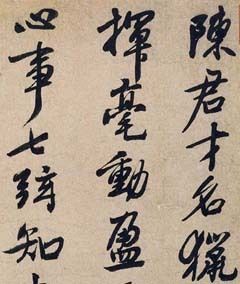 陳君才名獵
揮毫動盈
心事七知